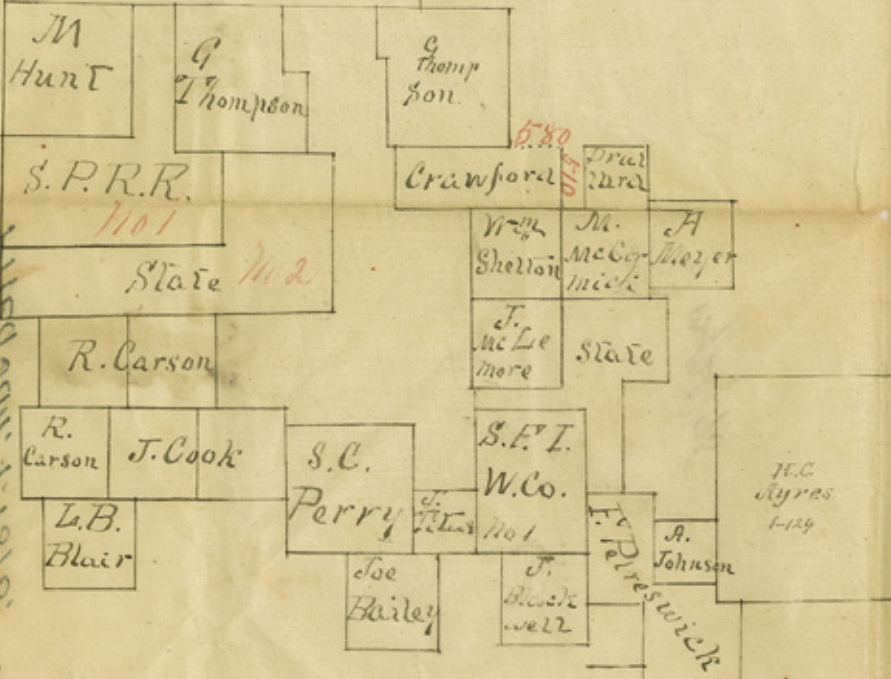 M
Hunt
G
Thompson
G
Thomp
son.
580
510
Crawford
S.P.R.R.
No 1
Wm
Shelton
M.
McCor
mick
H
Meyer
State No 2
J.
McLe
more
State
R. Carson
R.
Carson
J. Cook
S.C.
Perry
J.
Titus
S.F.I.
W.Co.
No 1
H.C.
Ayres
1-129
L.B.
Blair
Joe
Bailey
J.
Black
well
F. Petreswick
A.
Johnson